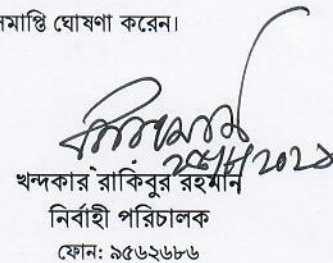 সমাপ্তি ঘোষণা করেন।
খন্দকার রাকিবুর রহমান
নির্বাহী পরিচালক
ফোন: ৯৫৬২৬৮৬